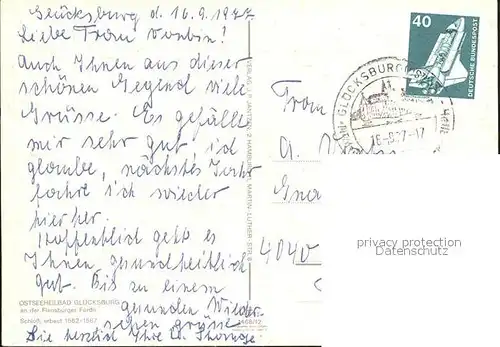 Glücksburg d. 16.9.1977
Liebe Frau
Auch Ihnen aus dieser
schönen Gegend viele
Grüsse. Es gefällt
mir sehr gut. ich
glaube, nächstes Jahr
fahre ich wieder
hierher.
Hoffentlich geht es
Ihnen gesundheitlich
gut. Bis zu einem
gesunden Wieder-
sehen grüsst
Sie herzlich Ihre
OSTSEEHEILBAD GLÜCKSBURG
an der Flensburger Förde
Schloß, erbaut 1582-1587
40
DEUTSCHE BUNDESPOST
GLÜCKSBURG
16.-9.77-17
Frau
4040
privacy protection
VERLAG
HAMBURG
MARTIN-LUTHER-STR.